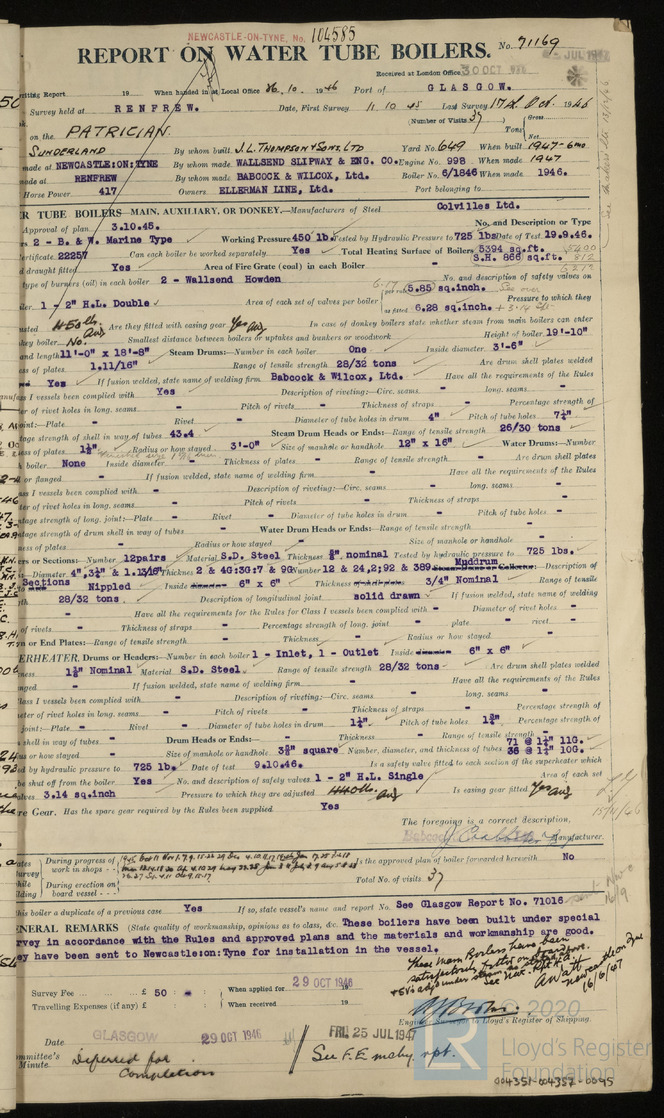 NEWCASTLE-ON-TYNE, No. 104585
REPORT ON WATER TUBE BOILERS. No. 71169
JUL 1947
Received at London Office 30 OCT 1946
riting Report 19 When handed in at Local Office 26. 10. 1946 Port of GLASGOW.
Survey held at RENFREW. Date, First Survey 11 10 45 Last Survey 17th Oct. 1946
(Number of Visits 37)
on the PATRICIAN. Tons Gross Net
SUNDERLAND By whom built J.L. THOMPSON & SONS, LTD Yard No. 649 When built 1947-6mo
made at NEWCASTLE:ON:TYNE By whom made WALLSEND SLIPWAY & ENG. CO. Engine No. 998 When made 1947
made at RENFREW By whom made BABCOCK & WILCOX, Ltd. Boiler No. 6/1846 When made 1946.
Horse Power 417 Owners ELLERMAN LINE, Ltd. Port belonging to
R TUBE BOILERS—MAIN, AUXILIARY, OR DONKEY.—Manufacturers of Steel Colvilles Ltd.
Approval of plan 3.10.45. No. and Description or Type
rs 2 - B. & W. Marine Type Working Pressure 450 lb. Tested by Hydraulic Pressure to 725 lbs Date of Test 19.9.46.
ertificate 22257 Can each boiler be worked separately Yes Total Heating Surface of Boilers 5394 sq.ft. 5400
S.H. 866 sq.ft. 812
d draught fitted Yes Area of Fire Grate (coal) in each Boiler - 6212
type of burners (oil) in each boiler 2 - Wallsend Howden No. and description of safety valves on
iler 1 - 2" H.L. Double Area of each set of valves per boiler per rule 5.85 sq.inch. See over Pressure to which they
as fitted 6.28 sq.inch. + 3.14
usted 450 lb. Are they fitted with easing gear Yes In case of donkey boilers state whether steam from main boilers can enter
key boiler No. Smallest distance between boilers or uptakes and bunkers or woodwork Height of boiler 19'-10"
and length 11'-0" x 18'-8" Steam Drums:—Number in each boiler One Inside diameter 3'-6"
ss of plates 1.11/16" Range of tensile strength 28/32 tons Are drum shell plates welded
Yes If fusion welded, state name of welding firm Babcock & Wilcox, Ltd. Have all the requirements of the Rules
I vessels been complied with Yes Description of riveting:—Circ. seams - long. seams -
er of rivet holes in long. seams - Pitch of rivets - Thickness of straps - Percentage strength of
joint:—Plate - Rivet - Diameter of tube holes in drum 4" Pitch of tube holes 7¼"
tage strength of shell in way of tubes 43.4 Steam Drum Heads or Ends:—Range of tensile strength 26/30 tons
ss of plates 1⅛" Radius or how stayed 3'-0" Size of manhole or handhole 12" x 16" Water Drums:—Number
boiler None Inside diameter - Thickness of plates - Range of tensile strength - Are drum shell plates
or flanged - If fusion welded, state name of welding firm - Have all the requirements of the Rules
ss I vessels been complied with - Description of riveting:—Circ. seams - long. seams -
er of rivet holes in long. seams - Pitch of rivets - Thickness of straps -
tage strength of long. joint:—Plate - Rivet - Diameter of tube holes in drum - Pitch of tube holes -
tage strength of drum shell in way of tubes - Water Drum Heads or Ends:—Range of tensile strength -
ness of plates - Radius or how stayed - Size of manhole or handhole -
rs or Sections:—Number 12pairs Material S.D. Steel Thickness ⅝" nominal Tested by hydraulic pressure to 725 lbs.
—Diameter 4",3¼" & 1.13/16" Thickness 2 & 4G:3G:7 & 9G Number 12 & 24,2;92 & 389. Muddrum Description of
Sections Nippled Inside 6" x 6" Thickness 3/4" Nominal Range of tensile
28/32 tons Description of longitudinal joint solid drawn If fusion welded, state name of welding
- Have all the requirements for the Rules for Class I vessels been complied with - Diameter of rivet holes -
of rivets - Thickness of straps - Percentage strength of long. joint - plate - rivet -
n or End Plates:—Range of tensile strength - Thickness - Radius or how stayed -
ERHEATER, Drums or Headers:—Number in each boiler 1 - Inlet, 1 - Outlet Inside 6" x 6"
ness 1⅛" Nominal Material S.D. Steel Range of tensile strength 28/32 tons Are drum shell plates welded
nged - If fusion welded, state name of welding firm - Have all the requirements of the Rules
lass I vessels been complied with - Description of riveting:—Circ. seams - long. seams -
eter of rivet holes in long. seams - Pitch of rivets - Thickness of straps - Percentage strength of
joint:—Plate - Rivet - Diameter of tube holes in drum 1¼" Pitch of tube holes 1¾" Percentage strength of
shell in way of tubes - Drum Heads or Ends:—Thickness - Range of tensile strength -
us or how stayed - Size of manhole or handhole 3⅝" square Number, diameter, and thickness of tubes 71 @ 1¼" 11G.
36 @ 1¼" 10G.
ed by hydraulic pressure to 725 lb. Date of test 9.10.46. Is a safety valve fitted to each section of the superheater which
be shut off from the boiler Yes No. and description of safety valves 1 - 2" H.L. Single Area of each set
valves 3.14 sq.inch Pressure to which they are adjusted 440 lb. Is easing gear fitted Yes
re Gear. Has the spare gear required by the Rules been supplied Yes
15/4/46
The foregoing is a correct description,
Babcock Manufacturer.
During progress of work in shops - -
During erection on board vessel - - -
Is the approved plan of boiler forwarded herewith No
Total No. of visits 37
this boiler a duplicate of a previous case Yes If so, state vessel's name and report No. See Glasgow Report No. 71016
GENERAL REMARKS (State quality of workmanship, opinions as to class, &c. These boilers have been built under special
rvey in accordance with the Rules and approved plans and the materials and workmanship are good.
ey have been sent to Newcastle:on:Tyne for installation in the vessel.
These Main Boilers have been
satisfactorily fitted on board
+ SV's adjd under steam
A Watt
Newcastle on Tyne
16/6/47
Survey Fee £ 50 : - : When applied for 29 OCT 1946
Travelling Expenses (if any) £ : : When received 19
Engineer Surveyor to Lloyd's Register of Shipping.
Date GLASGOW 29 OCT 1946 FRI. 25 JUL 1947
mmittee's Minute Deferred for completion
See F.E. mchy. rpt.
© 2020
LR Lloyd's Register Foundation
004351-004357-0095